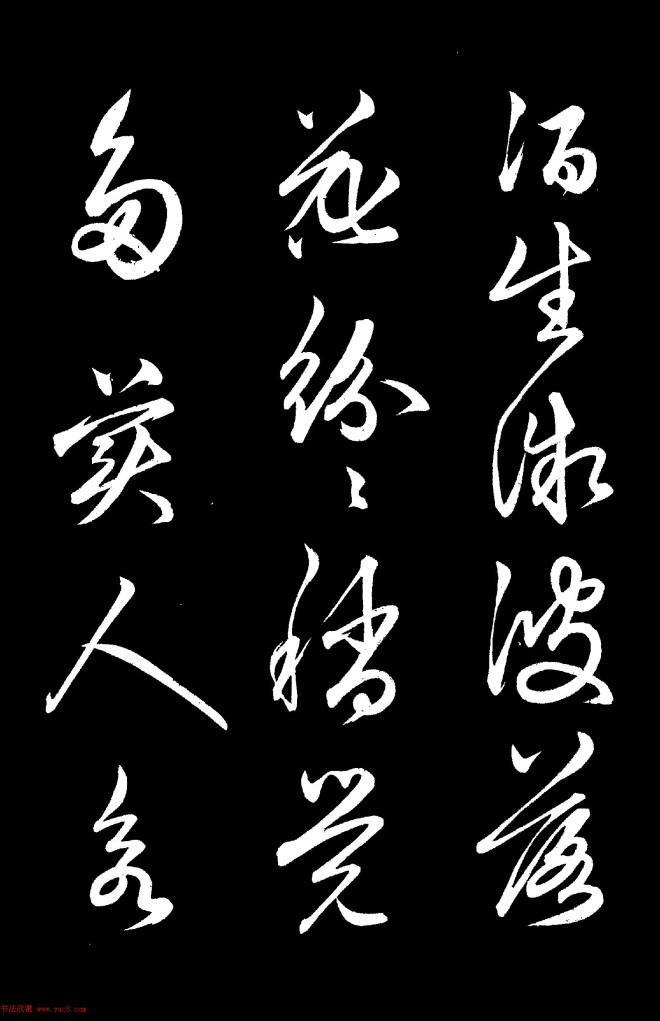 酒生微波落
花紛〻稍覺
多美人欲
书法欣赏 www.yac8.com